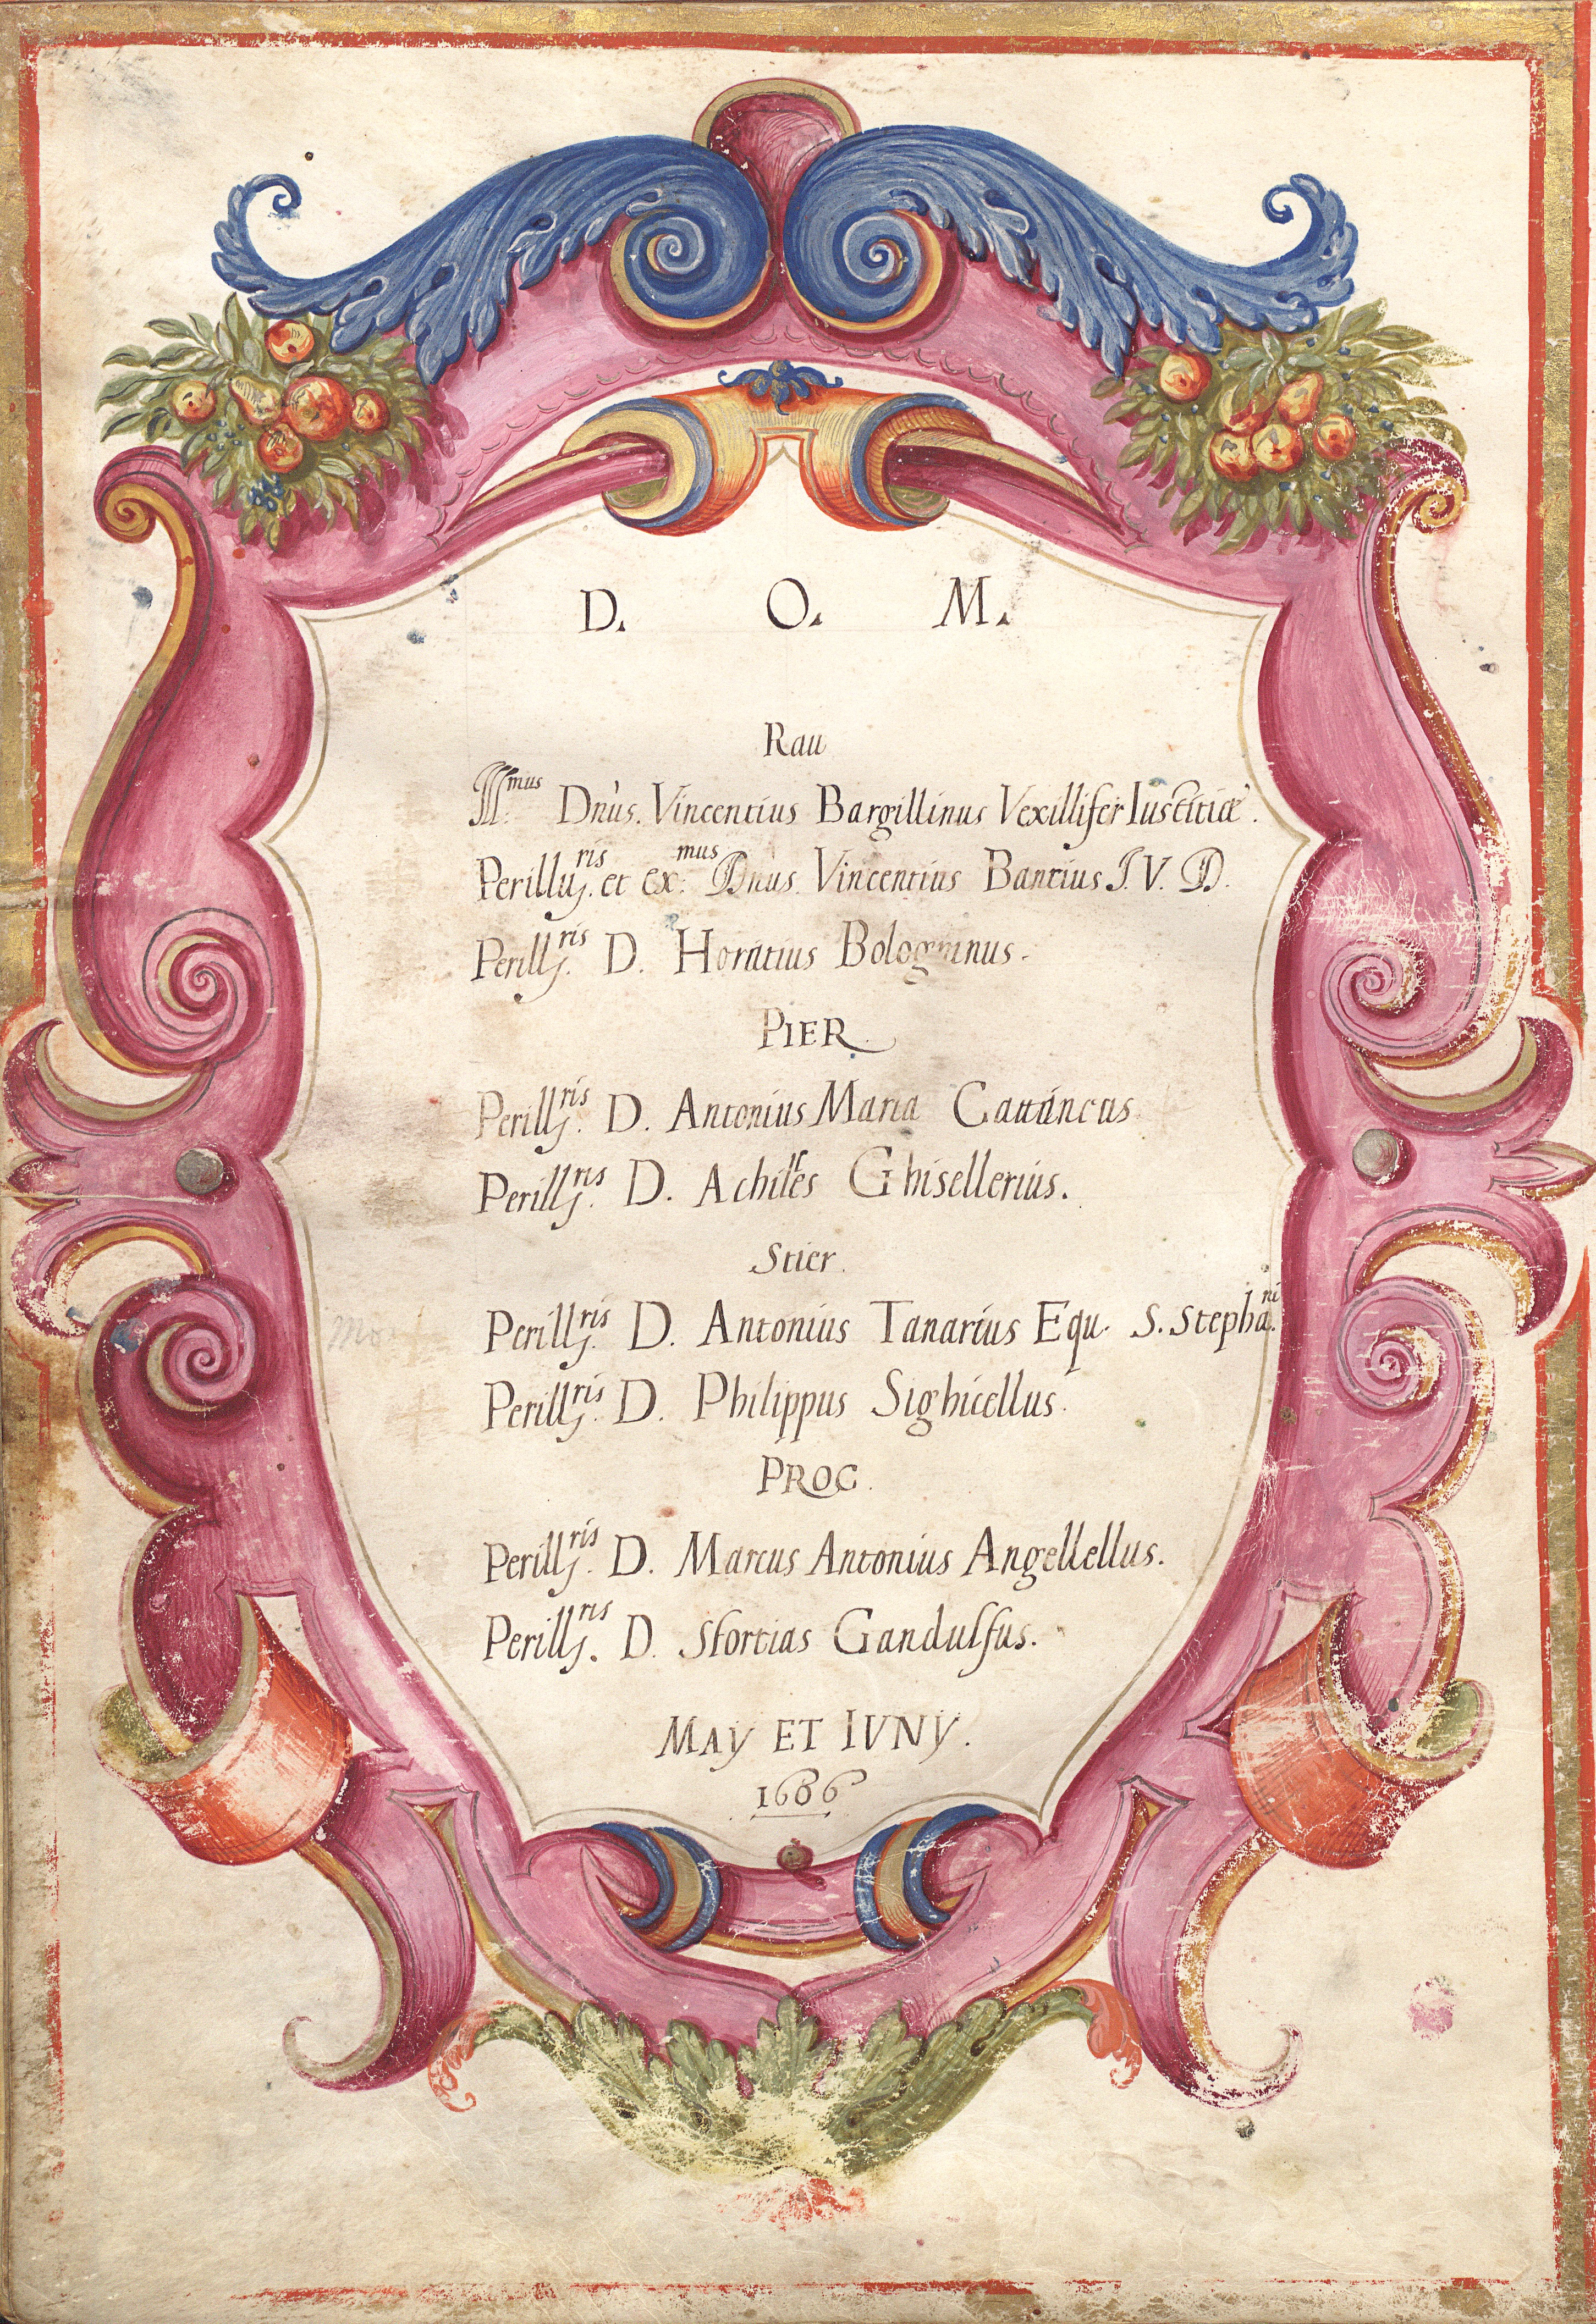 D. O. M.
Rau
Ill.mus Dnus. Vincentius Bargillinus Vexillifer Iustitiæ.
Perillus.ris et ex.mus Dnus. Vincentius Bantius I. V. D.
Perillus.ris D. Horatius Bologninus.
PIER.
Perill.ris D. Antonius Maria Cattáneus
Perill.ris D. Achilles Ghisellerius.
Stier.
Perill.ris D. Antonius Tanarius Equ. S. Stepha.ni
Perill.ris D. Philippus Sighicellus.
PROC.
Perill.ris D. Marcus Antonius Angellellus.
Perill.ris D. Sfortias Gandulfus.
MAY ET IVNY.
1606